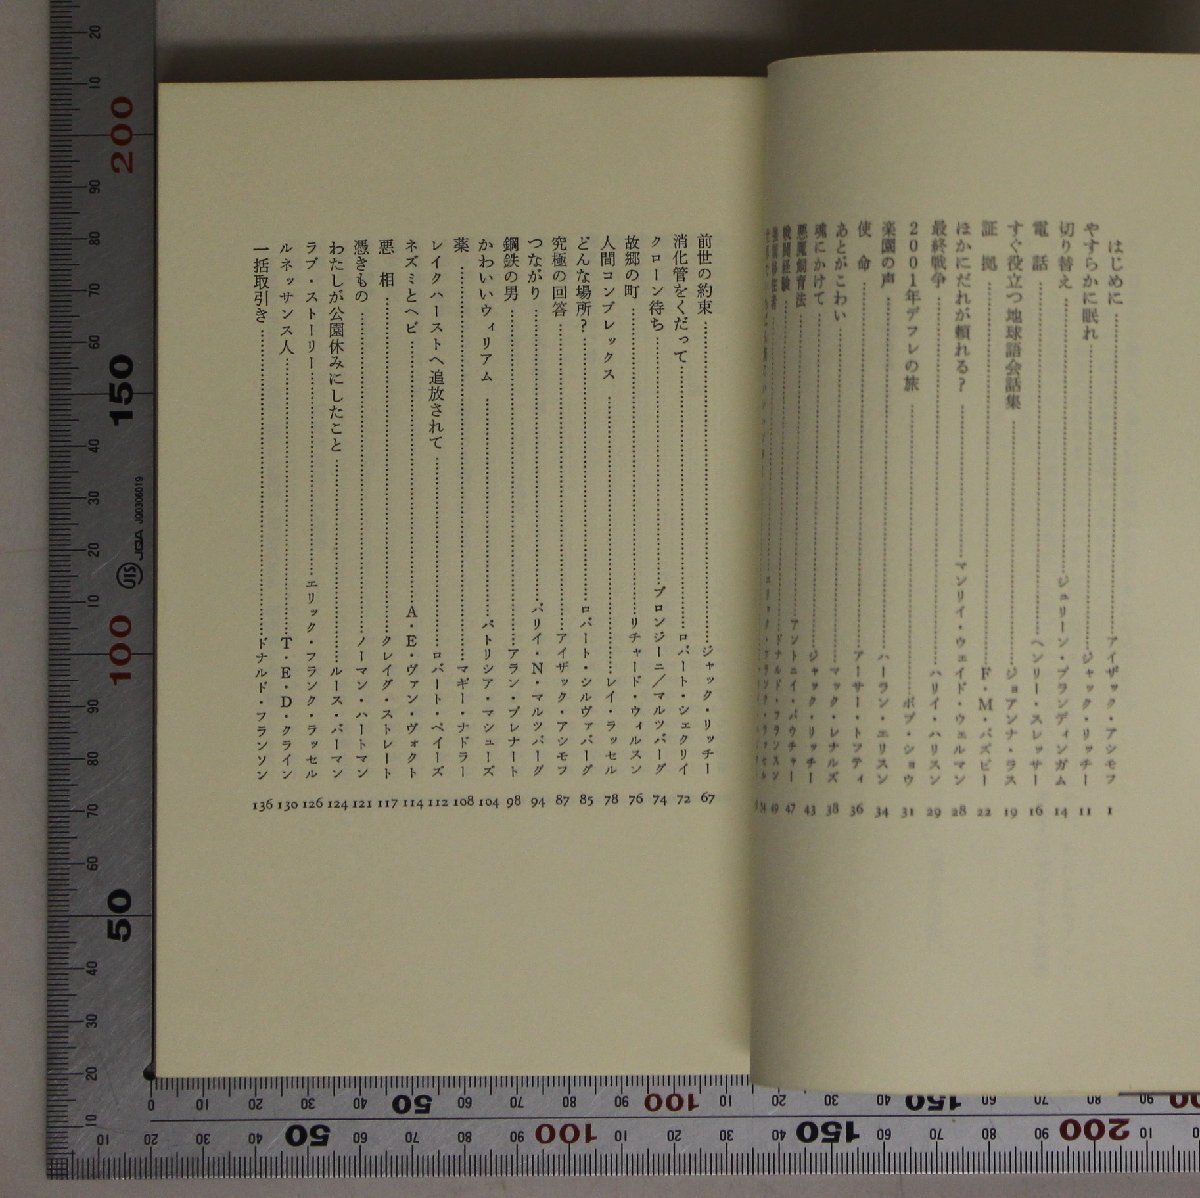 はじめに アイザック・アシモフ 1
やすらかに眠れ ジャック・リッチー 11
切り替え ジュリーン・ブランディンガム 14
電話 ヘンリー・スレッサー 16
すぐ役立つ地球語会話集 ジョアンナ・ラス 19
証拠 F・M・バズビー 22
ほかにだれが頼れる? マンリイ・ウェイド・ウェルマン 28
最終戦争 ハリイ・ハリスン 29
2001年デフレの旅 ボブ・ショウ 31
楽園の声 ハーラン・エリスン 34
使命 アーサー・トフティ 36
あとがこわい マック・レナルズ 38
魂にかけて ジャック・リッチー 43
悪魔飼育法 アントニイ・バウチャー 47
戦闘経験 ドナルド・フランスン 49
前世の約束 ジャック・リッチー 67
消化管をくだって ロバート・シェクリイ 72
クローン待ち プロンジーニ/マルツバーグ 74
故郷の町 リチャード・ウィルスン 76
人間コンプレックス レイ・ラッセル 78
どんな場所? ロバート・シルヴァバーグ 85
究極の回答 アイザック・アシモフ 87
つながり バリイ・N・マルツバーグ 94
鋼鉄の男 アラン・ブレナート 98
かわいいウィリアム パトリシア・マシューズ 104
薬 マギー・ナドラー 108
レイクハーストへ追放されて ロバート・ペイーズ 112
ネズミとヘビ A・E・ヴァン・ヴォクト 114
悪相 クレイグ・ストレート 117
憑きもの ノーマン・ハートマン 121
わたしが公園休みにしたこと ルース・バーマン 124
ラブ・ストーリー エリック・フランク・ラッセル 126
ルネッサンス人 T・E・D・クライン 130
一括取引き ドナルド・フランソン 136
JIS JQA JQ0306019